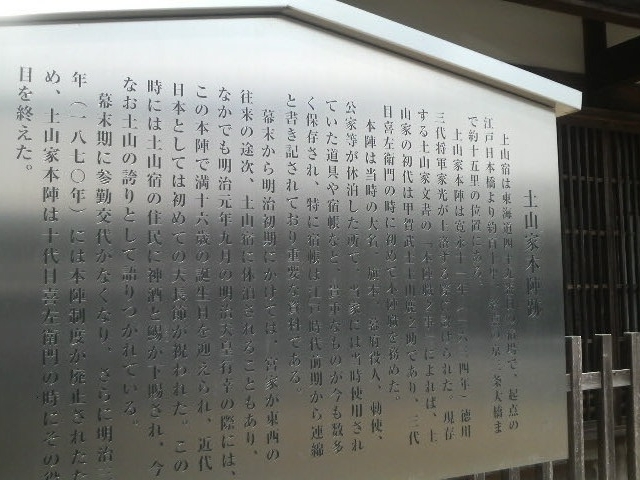 土山家本陣跡
土山宿は東海道四十九番目の宿場で、起点の
江戸日本橋より約百十里、
で約十五里の位置にある。
土山家本陣は寛永十一年(一六三四年)徳川
三代将軍家光が上洛する際に設けられた。現存
する土山家文書の「本陣職之事」によれば、土
山家の初代は甲賀武士土山鹿之助であり、三代
目喜左衛門の時に初めて本陣職を務めた。
本陣は当時の大名、旗本、幕府役人、勅使、
公家等が休泊した所で、当家には当時使用され
ていた道具や宿帳など、貴重なものが今も数多
く保存され、特に宿帳は江戸時代前期から連綿
と書き記されており重要な資料である。
幕末から明治初期にかけては、宮家が東西の
往来の途次、土山宿に休泊されることもあり、
なかでも明治元年九月の明治天皇行幸の際には、
この本陣で満十六歳の誕生日を迎えられ、近代
日本としては初めての天長節が祝われた。この
時には土山宿の住民に神酒と鯣が下賜され、今
なお土山の誇りとして語りつがれている。
幕末期に参勤交代がなくなり、さらに明治三
年(一八七〇年)には本陣制度が廃止されたた
め、土山家本陣は十代目喜左衛門の時にその役
目を終えた。